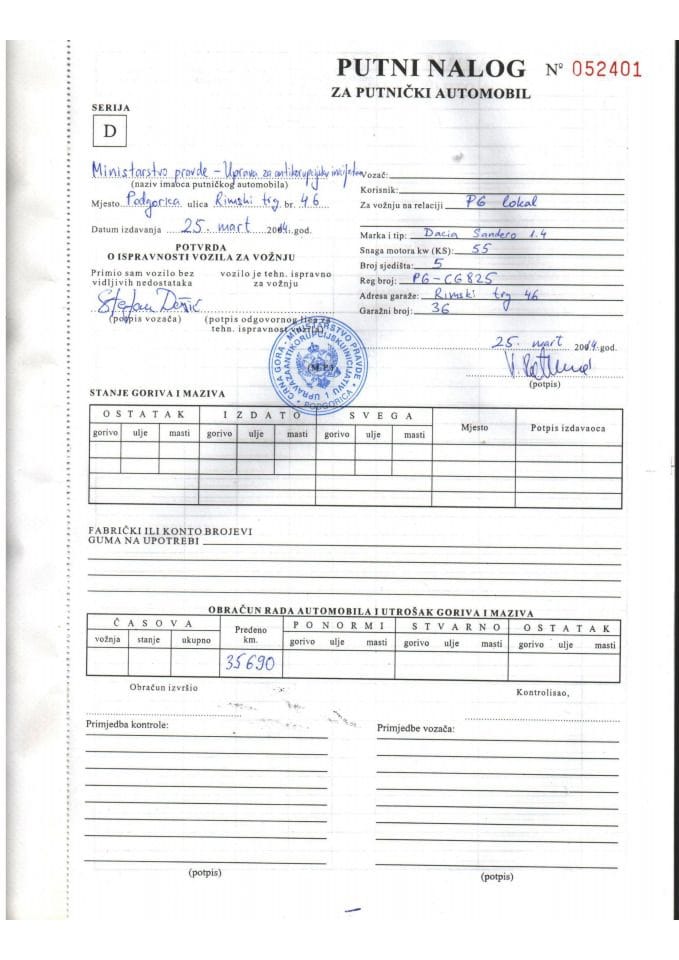 PUTNI NALOG Nº 052401
ZA PUTNIČKI AUTOMOBIL
SERIJA
D
Ministarstvo pravde – Uprava za antikorupcijsku inicijativu
(naziv imaoca putničkog automobila)
Mjesto Podgorica ulica Rimski trg br. 46
Datum izdavanja 25. mart 2014. god.
POTVRDA
O ISPRAVNOSTI VOZILA ZA VOŽNJU
Primio sam vozilo bez vidljivih nedostataka
vozilo je tehn. ispravno za vožnju
Stefan
(potpis vozača)
(potpis odgovornog lica za tehn. ispravnost vozila)
Vozač:
Korisnik:
Za vožnju na relaciji PG lokal
Marka i tip: Dacia Sandero 1.4
Snaga motora kw (KS): 55
Broj sjedišta: 5
Reg broj: PG-CG825
Adresa garaže: Rimski trg 46
Garažni broj: 36
25. mart 2014 god.
(potpis)
(M.P.)
CRNA GORA - MINISTARSTVO PRAVDE
UPRAVA ZA ANTIKORUPCIJSKU INICIJATIVU 1
PODGORICA
STANJE GORIVA I MAZIVA
OSTATAK IZDATO SVEGA Mjesto Potpis izdavaoca
gorivo ulje masti gorivo ulje masti gorivo ulje masti
FABRIČKI ILI KONTO BROJEVI
GUMA NA UPOTREBI
OBRAČUN RADA AUTOMOBILA I UTROŠAK GORIVA I MAZIVA
ČASOVA Pređeno km. PONORMI STVARNO OSTATAK
vožnja stanje ukupno gorivo ulje masti gorivo ulje masti gorivo ulje masti
35690
Obračun izvršio
Kontrolisao,
Primjedba kontrole:
Primjedbe vozača:
(potpis)
(potpis)